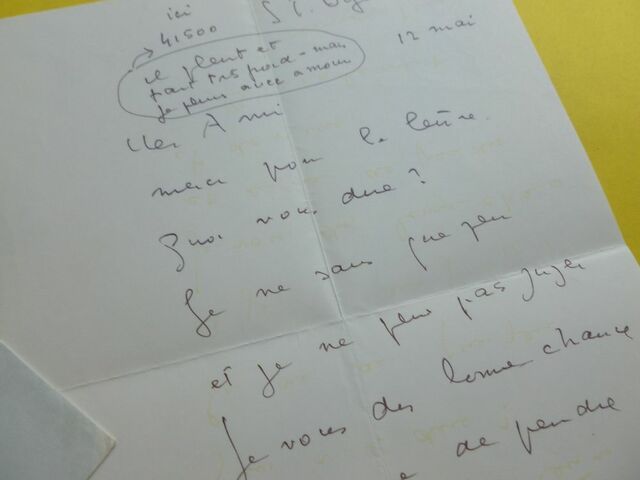 ici
41500
12 mai
il pleut et
fait très froid - mais
je pense avec amour
Cher Ami
merci pour la lettre.
Quoi vous dire ?
Je ne sais que peu
et je ne peux pas juger
Je vous dis bonne chance
de perdre